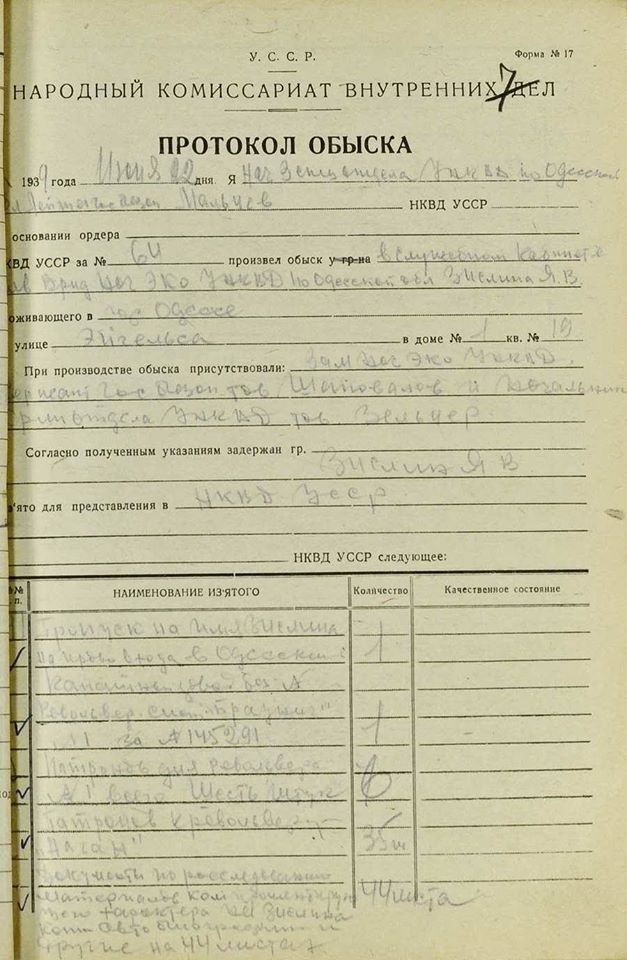 У. С. С. Р.
Форма № 17
НАРОДНЫЙ КОМИССАРИАТ ВНУТРЕННИХ ДЕЛ
7
ПРОТОКОЛ ОБЫСКА
1939 года Июня 22 дня. Я Нач УНКВД по Одесской
Мальцев НКВД УССР
основании ордера
КВД УССР за № 64 произвел обыск у гр-на в служебном кабинете
Врид Нач ЭКО УНКВД по Одесской обл Зислина Я. В.
оживающего в гор Одессе
улице Энгельса в доме № 1 кв. № 19
При производстве обыска присутствовали: Зам Нач ЭКО УНКВД
Гос тов Шаповалов и
УНКВД тов
Согласно полученным указаниям задержан гр. Зислин Я В
ято для представления в НКВД УССР
НКВД УССР следующее:
№ п.
НАИМЕНОВАНИЕ ИЗ'ЯТОГО
Количество
Качественное состояние
Пропуск на имя Зислина
на право входа в Одесской 1
Револьвер сист. "Браунинг"
за № 145291 1
Патроны для револьвера
№ 1 всего шесть штук 6
Патронов к револьверу
"Наган" 35 ш
Документы по расследованию
материалов компрометирую 44 листа
щего характера на Зислина
и
другие на 44 листах